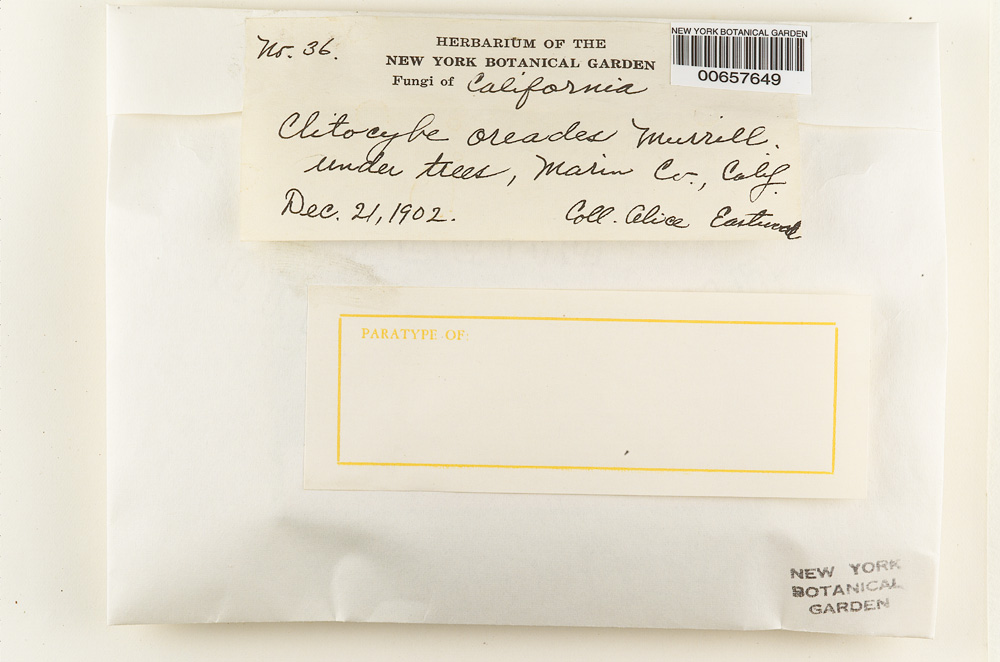 No. 36.
HERBARIUM OF THE
NEW YORK BOTANICAL GARDEN
Fungi of California
NEW YORK BOTANICAL GARDEN
00657649
Clitocybe oreades Murrill.
under trees, Marin Co., Calif.
Dec. 21, 1902. Coll. Alice Eastwood
PARATYPE OF:
NEW YORK
BOTANICAL
GARDEN